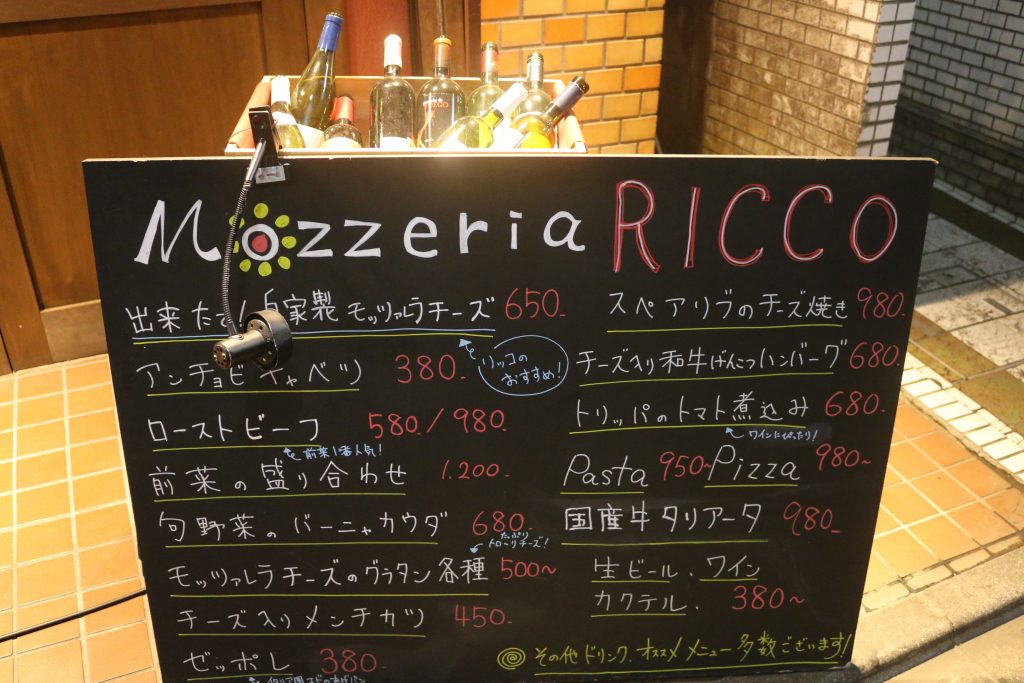 Mozzeria RICCO
出来たて!自家製 モッツァレラチーズ 650-
リッコの
おすすめ!
アンチョビキャベツ 380-
ローストビーフ 580./980.
前菜1番人気!
前菜の盛り合わせ 1.200-
旬野菜のバーニャカウダ 680-
たっぷり
トロ〜リチーズ!
モッツァレラチーズのグラタン各種 500〜
チーズ入りメンチカツ 450-
ゼッポレ 380.
スペアリブのチーズ焼き 980.
チーズ入り和牛げんこつハンバーグ 680.
トリッパのトマト煮込み 680.
ワインにぴったり!
Pasta 950〜 Pizza 980〜
国産牛タリアータ 980-
生ビール、ワイン
カクテル. 380〜
その他ドリンク、オススメメニュー多数ございます!